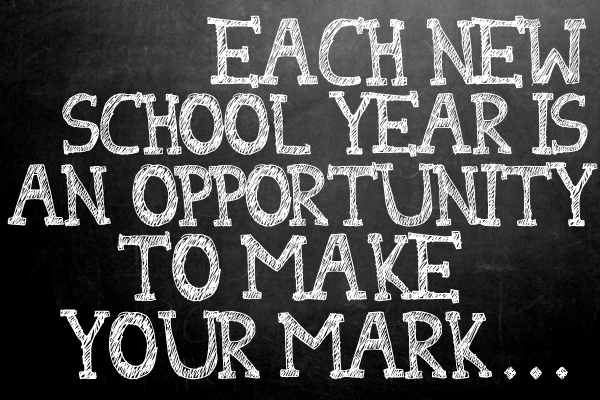 EACH NEW
SCHOOL YEAR IS
AN OPPORTUNITY
TO MAKE
YOUR MARK...